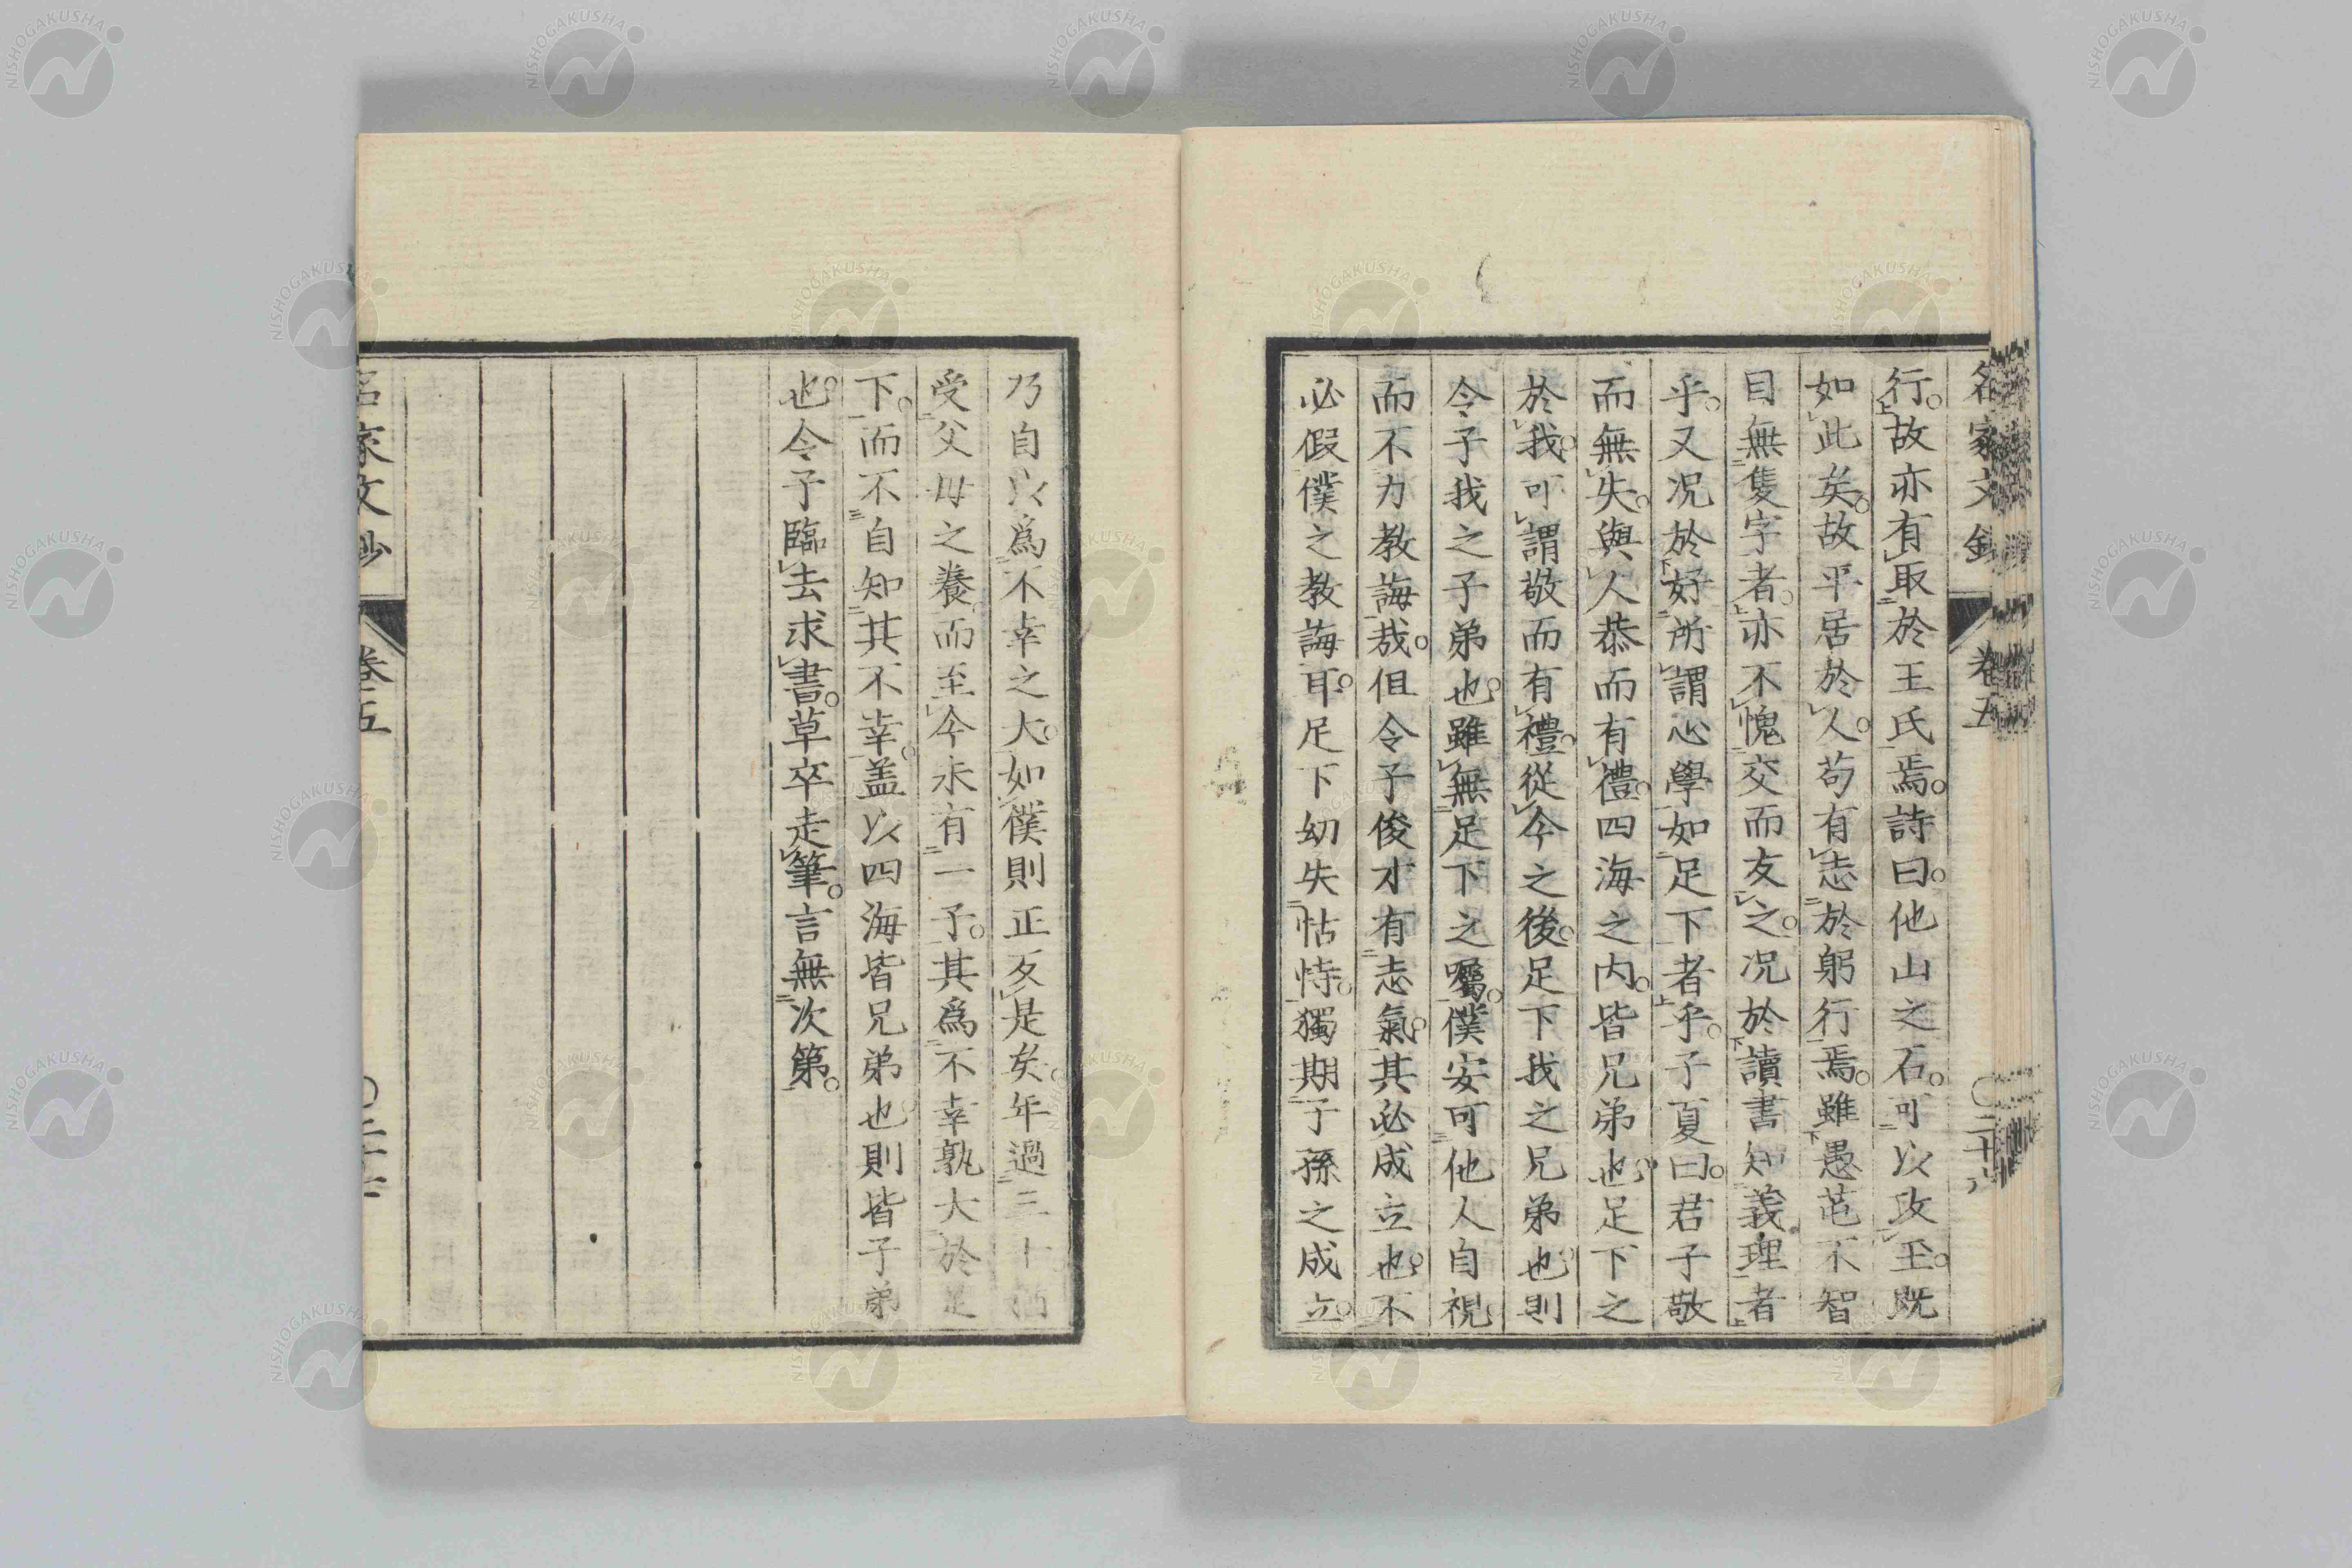 名家文鈔 卷五 〇二十六
行。故亦有取於王氏焉。詩曰。他山之石。可以攻玉。既
如此矣。故平居於人。苟有志於躬行焉。雖愚芚不智
目無隻字者。亦不愧交而友之。况於讀書知義理者
乎。又况於好所謂心學如足下者乎。子夏曰。君子敬
而無失。與人恭而有禮。四海之内。皆兄弟也。足下之
於我。可謂敬而有禮。從今之後。足下我之兄弟也。則
令子我之子弟也。雖無足下之囑。僕安可他人自視。
而不力教誨哉。但令子俊才有志氣。其必成立也。不
必假僕之教誨耳。足下幼失怙恃。獨期子孫之成立。
乃自以爲不幸之大。如僕則正反是矣。年過三十。猶
受父母之養而至今未有一子。其爲不幸孰大於足
下。而不自知其不幸。盖以四海皆兄弟也。則皆子弟
也。令子臨去求書。草卒走筆。言無次第。
名家文鈔 卷五
NISHOGAKUSHA